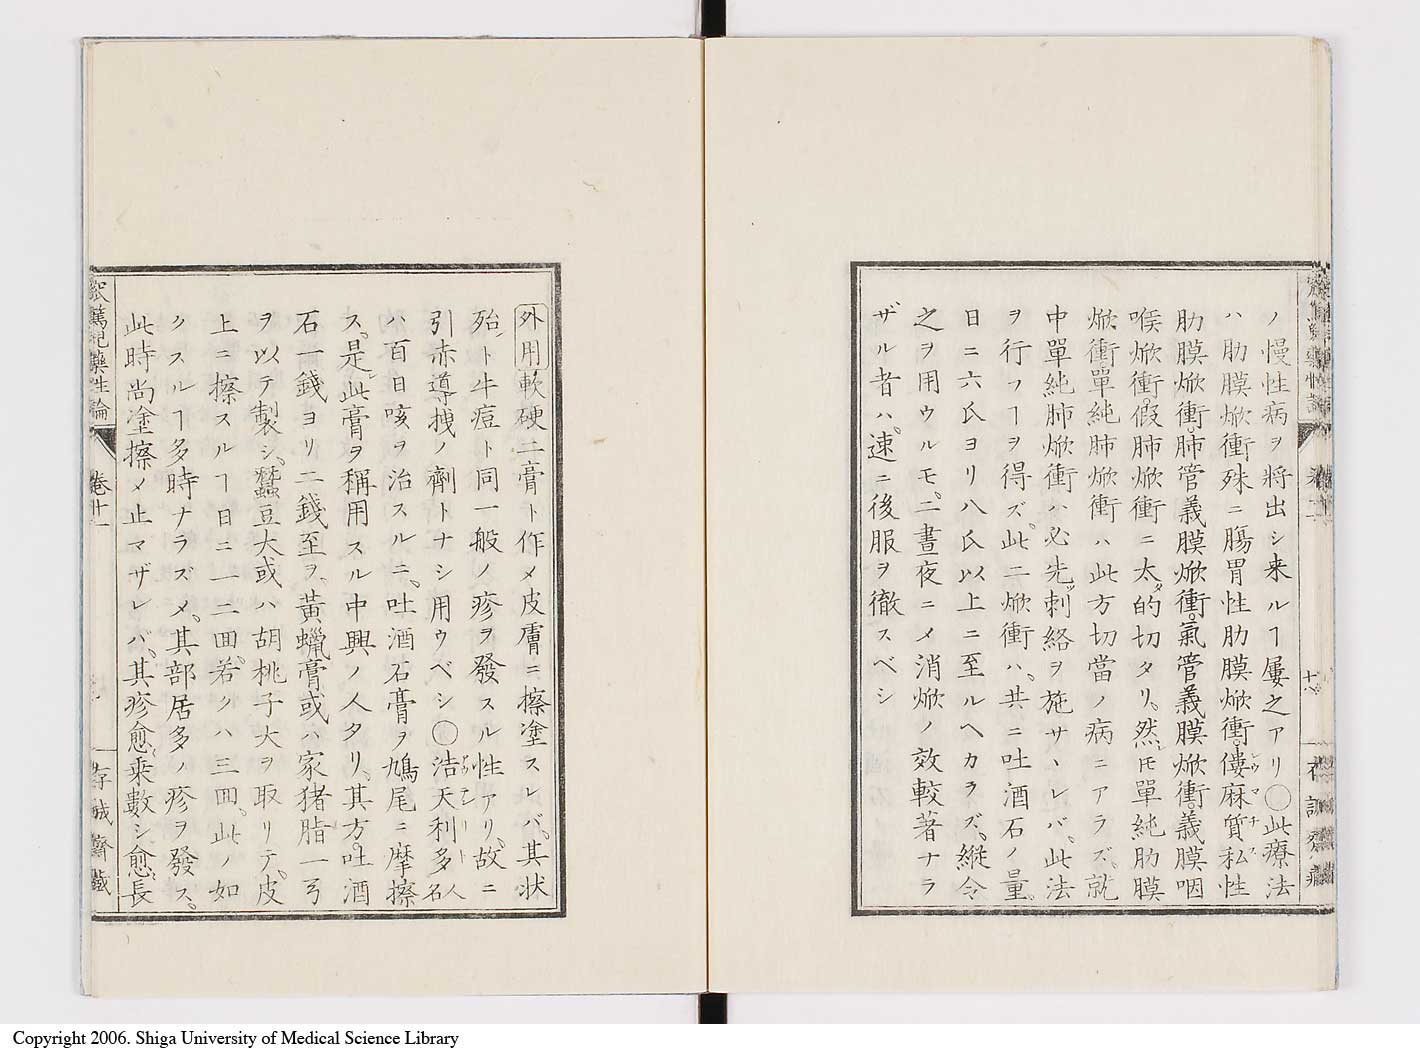 ノ慢性病ヲ將出シ来ルヿ屢之アリ〇此療法
ハ肋膜焮衝殊ニ膓胃性肋膜焮衝僂麻質私性
肋膜焮衝肺管義膜焮衝氣管義膜焮衝義膜咽
喉焮衝假肺焮衝ニ太的切タリ然𪜈單純肋膜
焮衝單純肺焮衝ハ此方切當ノ病ニアラズ就
中單純肺焮衝ハ必先刺絡ヲ施サヽレバ此法
ヲ行フヿヲ得ズ此二焮衝ハ共ニ吐酒石ノ量
日ニ六氏ヨリ八氏以上ニ至ルヘカラズ縦令
之ヲ用ウルモ二晝夜ニメ消焮ノ效較著ナラ
ザル者ハ速ニ後服ヲ徹スベシ
外用軟硬二膏ト作メ皮膚ニ擦塗スレバ其状
殆ト牛痘ト同一般ノ疹ヲ發スル性アリ故ニ
引赤導拽ノ劑トナシ用ウベシ〇浩天利多人名
ハ百日咳ヲ治スルニ吐酒石膏ヲ鳩尾ニ摩擦
ス是此膏ヲ稱用スル中興ノ人タリ其方吐酒
石一錢ヨリ二錢至ヲ黃蠟膏或ハ家猪脂一弓
ヲ以テ製シ蠶豆大或ハ胡桃子大ヲ取リテ皮
上ニ擦スルヿ日ニ一二回若クハ三回此ノ如
クスルヿ多時ナラズメ其部居多ノ疹ヲ發ス
此時尚塗擦メ止マザレバ其疹愈乗數シ愈長
卷十一
存誠齋藏
Copyright 2006. Shiga University of Medical Science Library